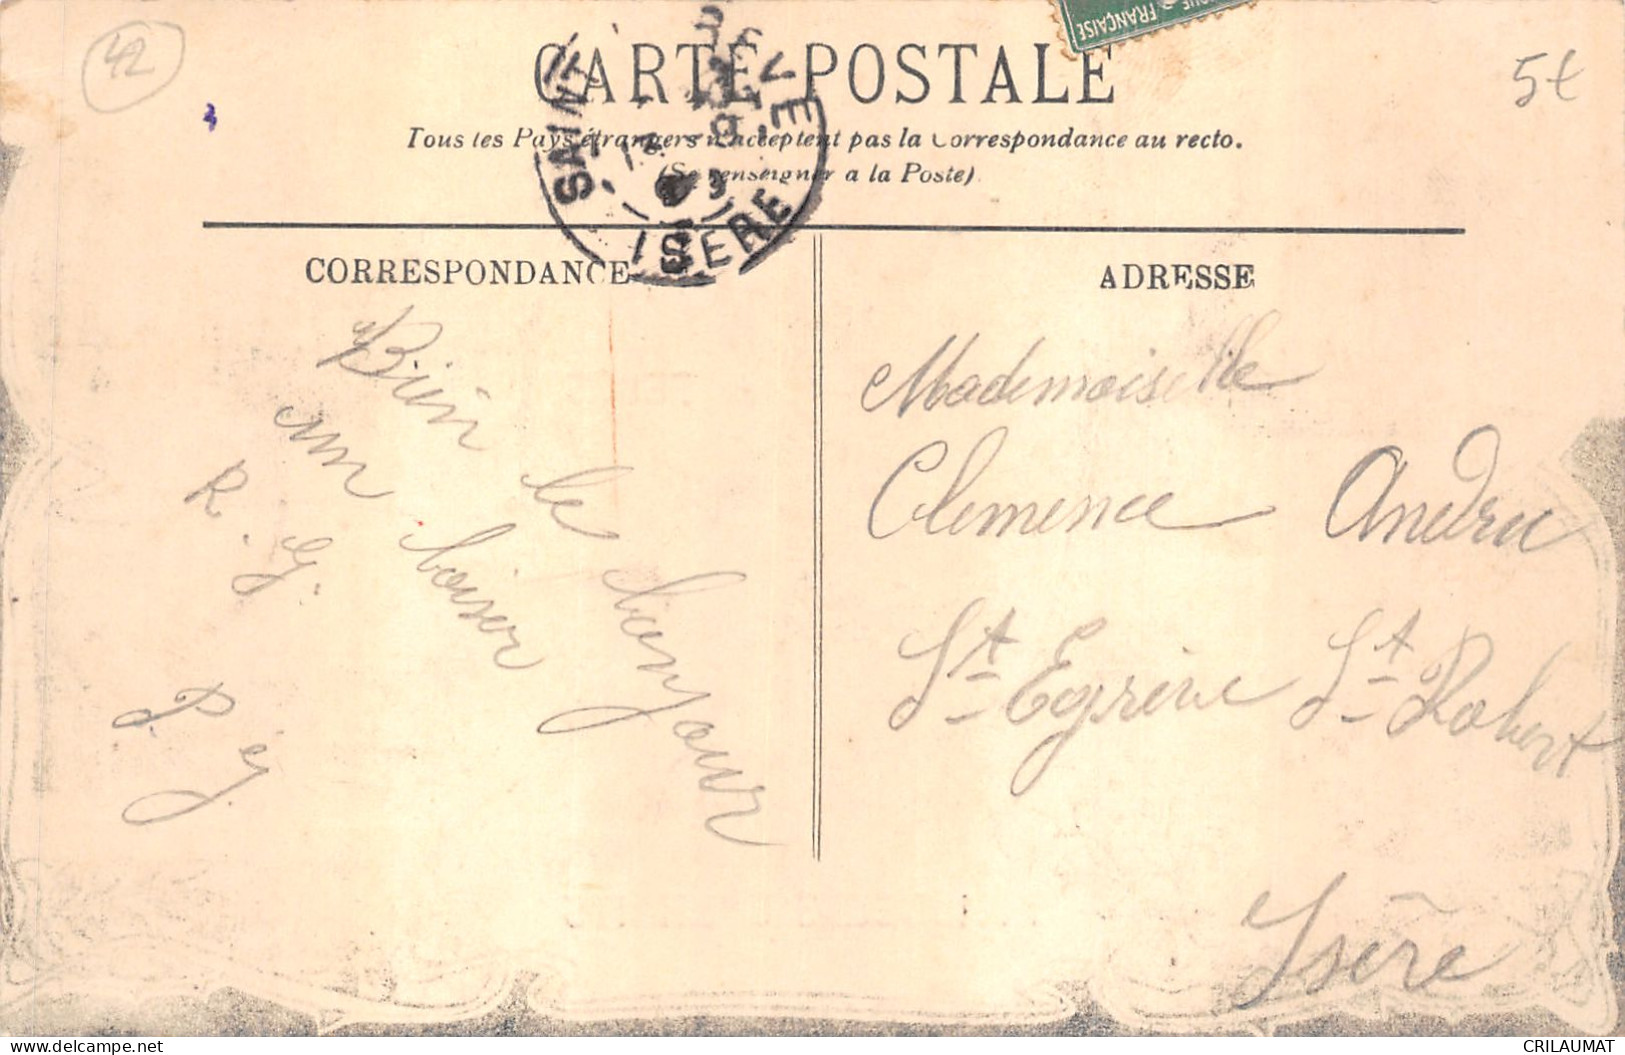 42
5€
QUE FRANÇAISE
CARTE POSTALE
Tous les Pays étrangers n'acceptent pas la Correspondance au recto.
(Se renseigner a la Poste)
SAINT
ISERE
CORRESPONDANCE
Bien le bonjour
un baiser
R. G.
P. G.
ADRESSE
Mademoiselle
Clemence Andru
St Egrève St Robert
Isère
CRILAUMAT